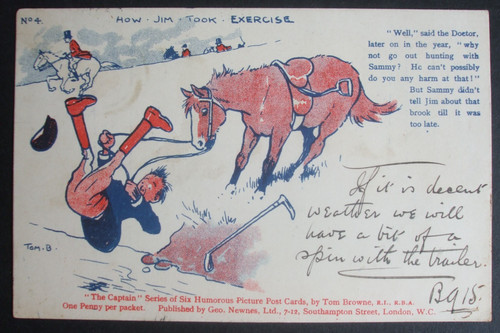 No 4.
HOW · JIM · TOOK · EXERCISE
"Well," said the Doctor,
later on in the year, "why
not go out hunting with
Sammy? He can't possibly
do you any harm at that!"
But Sammy didn't
tell Jim about that
brook till it was
too late.
If it is decent
weather we will
have a bit of a
spin with the trailer.
B915.
TOM · B ·
"The Captain" Series of Six Humorous Picture Post Cards, by Tom Browne, R.I., R.B.A.
One Penny per packet. Published by Geo. Newnes, Ltd., 7-12, Southampton Street, London, W.C.